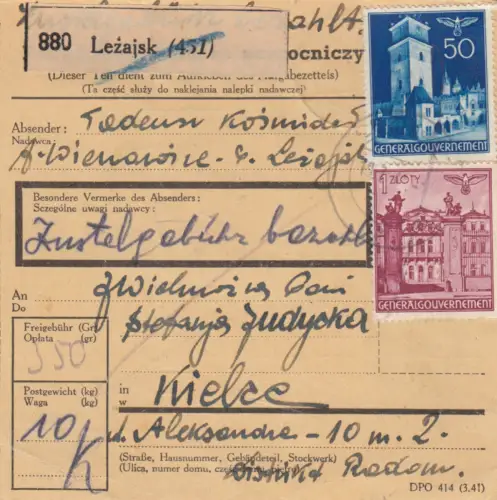 880 Leżajsk (451)
ocniczy
(Dieser Teil dient zum Aufkleben des Aufgabezettels)
(Ta część służy do naklejania nalepki nadawczej)
50
GENERALGOUVERNEMENT
Absender: Tadeusz
Nadawca:
1 ZŁOTY
Besondere Vermerke des Absenders:
Szczególne uwagi nadawcy:
Zustelgebühr
GENERALGOUVERNEMENT
JWielmożna Pani
An
Do
Stefanja Judycka
Freigebühr (Gr)
Opłata (gr)
350
Postgewicht (kg)
Waga (kg)
in
w
Kielce
10 ul. Aleksandra - 10 m. 2.
K
(Straße, Hausnummer, Gebäudeteil, Stockwerk)
(Ulica, numer domu,
Distrikt Radom.
DPO 414 (3.41)